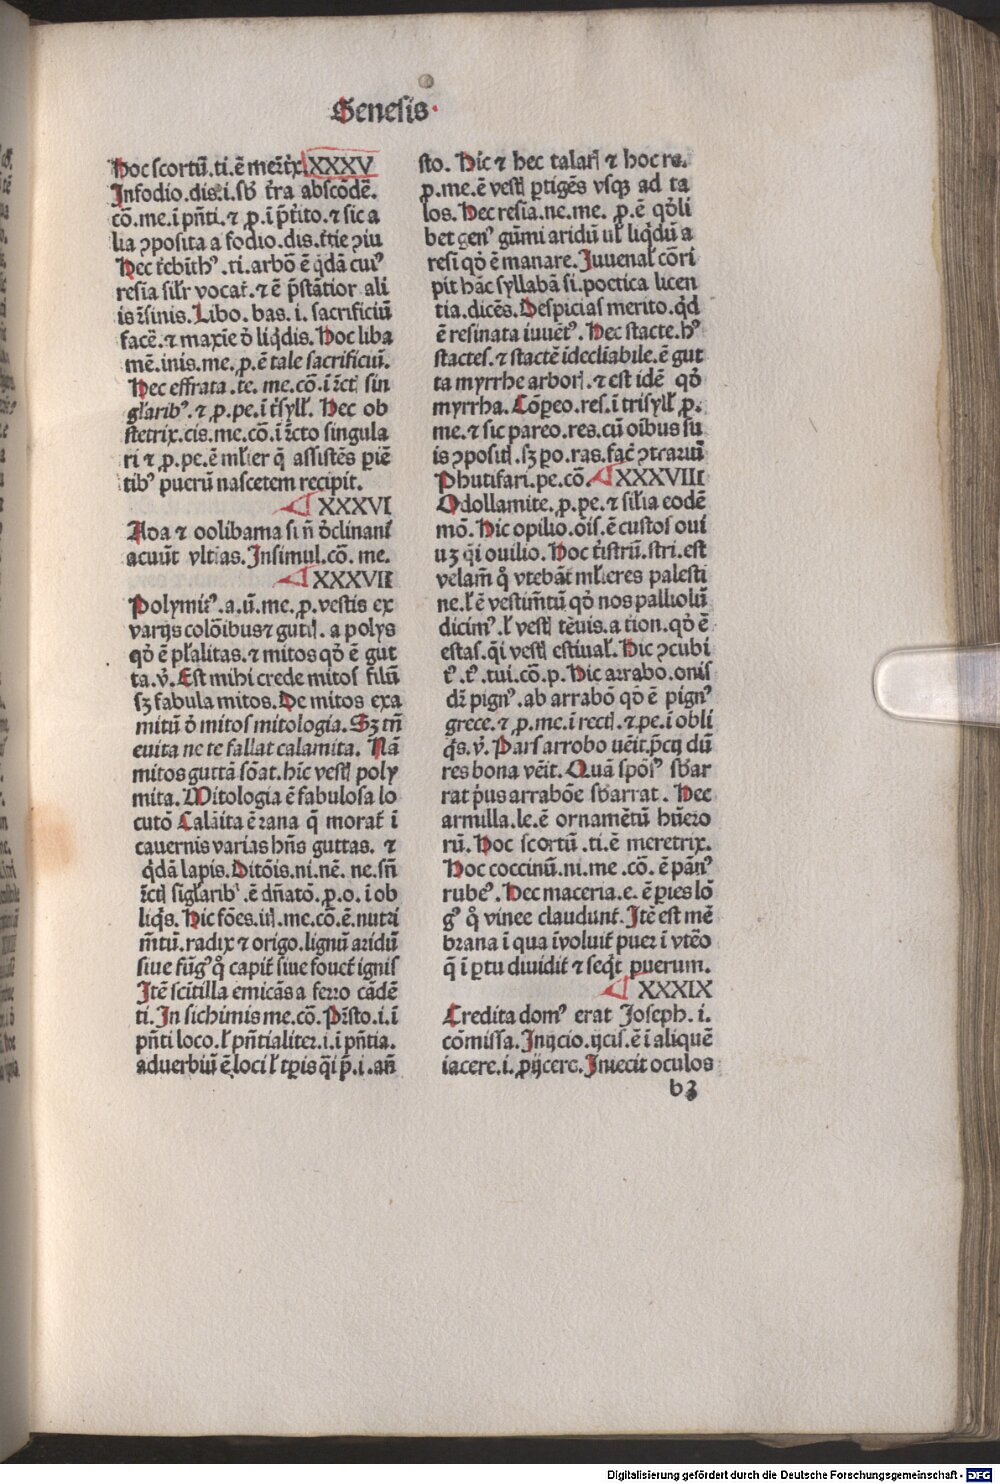 Genesis.
Hoc scortū.ti.ē mer̄t̉x. XXXV
Infodio.dis.i.sb̄ t̄ra abscōdē.
cō.me.ī pn̄ti.⁊ ꝓ.ī p̄t̉ito.⁊ sic a
lia ꝯposita a fodio.dis.t̄tie ꝯiu
Hec t̄ebīthꝰ.ti.arbō ē q̉dā cuiꝰ
resīa silr̄ vocat̄.⁊ ē p̄stātior ali
is r̄sinis. Libo. bas. i. sacrificiū
facē.⁊ maxīe ď liq̉dis. Hoc liba
mē.inis.me.ꝓ.ē tale sacrificiū.
Hec effrata.te.me.cō.ī r̄ctꝭ sin
gl̄aribꝰ.⁊ ꝓ.pe.ī t̉syll̄. Hec ob
stetrix.cis.me.cō.ī r̄cto singula
ri ⁊ ꝓ.pe.ē ml̄ier q̄ assistēs ꝑiē
tibꝰ puerū nascetem recipit.
XXXVI
Ada ⁊ oolibama si n̄ ďclinant̄
acuūt vltīas. Insimul.cō. me.
XXXVII
Polymit̉ꝰ.a.ū.me.ꝓ.vestis ex
varijs colōibus⁊ gutꝭ. a polys
qď ē pl̄alitas.⁊ mitos qď ē gut
ta.v̉. Est mihi crede mitos filū
sꝫ fabula mitos. De mitos exa
mitū ď mitos mitologia. Sꝫ tn̄
euita ne te fallat calamita. Nā
mitos guttā sōat. hīc vestꝭ poly
mita. Mitologia ē fabulosa lo
cutō Calāita ē rana q̄ morat̄ ī
cauernis varias hn̄s guttas. ⁊
q̉dā lapis. Ditōis.ni.nē. ne.sn̄
r̄ctꝭ sigl̄aribꝰ.ē dn̄atō.ꝓ.o.ī ob
liq̉s. Hic fōes.itꝭ.me.cō.ē.nutri
mt̄ū.radix ⁊ origo.lignū aridū
siue fūgꝰ q̊ capit̄ siue fouet̄ ignis
Itē scītilla emicās a ferro cādē
ti. In sichimis me.cō. Pr̄sto.i.ī
pn̄ti loco.ł pn̄tialiter.i.ī pn̄tia.
aduerbiū ē loci ł tꝑis q̉i p̄.i.an̄
sto. Hic ⁊ hec talarꝭ ⁊ hoc re.
ꝓ.me.ē vestꝭ ꝑtigēs vsqꝫ ad ta
los. Hec resīa.ne.me. ꝓ.ē qďli
bet genꝰ gūmi aridū ul̄ liq̉dū a
resī qď ē manare. Iuuenal̄ cōri
pit hāc syllabā si.poetica licen
tia.dicēs. Despicias merito.q̉d
ē resinata iuuētꝰ. Hec stacte.hꝰ
stactes.⁊ stactē īdecliabile.ē gut
ta myrrhe arborꝭ.⁊ est idē qď
myrrha. Cōpeo.res.ī trisyll̄ ꝓ.
me.⁊ sic pareo.res.cū oībus su
is ꝯpositꝭ.sꝫ ꝑo.ras.fac̄ ꝯtrariū
Phutifari.pe.cō. XXXVIII
Odollamite.ꝓ.pe.⁊ sil̄ia eodē
mō. Hic opilio.ōis.ē custos oui
uꝫ q̉i ouilio. Hoc t̉istrū.stri.est
velam̄ q̊ vtebāt̄ ml̄ieres palesti
ne.ł ē vestimt̄ū qď nos palliolū
dicimꝰ.ł vestꝭ tēuis.a tion.qď ē
estas.q̉i vestꝭ estiual̄. Hic ꝯcubi
tꝰ.tꝰ.tui.cō.p. Hic arrabo.onis
dr̄ pignꝰ.ab arrabō qď ē pignꝰ
grece.⁊ ꝓ.me.ī rectꝭ.⁊ pe.ī obli
q̉s.v̉. Pars arrobo uēit.p̄cij dū
res bona vēit. Quā spōsꝰ sb̄ar
rat p̉us arrabōe sb̄arrat. Hec
armilla.le.ē ornamētū hūero
rū. Hoc scortū.ti.ē meretrix.
Hoc coccinū.ni.me.cō. ē pānꝰ
rubeꝰ. Hec maceria.e.ē ꝑies lō
gꝰ q̊ vinee claudunt̄. Itē est mē
brana ī qua īvoluit̄ puer ī vtēo
q̄ ī ꝑtu diuidit̄ ⁊ seq̉t̄ puerum.
XXXIX
Credita domꝰ erat Joseph. i.
cōmissa. Inijcio.ijcis.ē ī aliquē
iacere.i.ꝓijcere. Iniecit oculos
b3
Digitalisierung gefördert durch die Deutsche Forschungsgemeinschaft - DFG